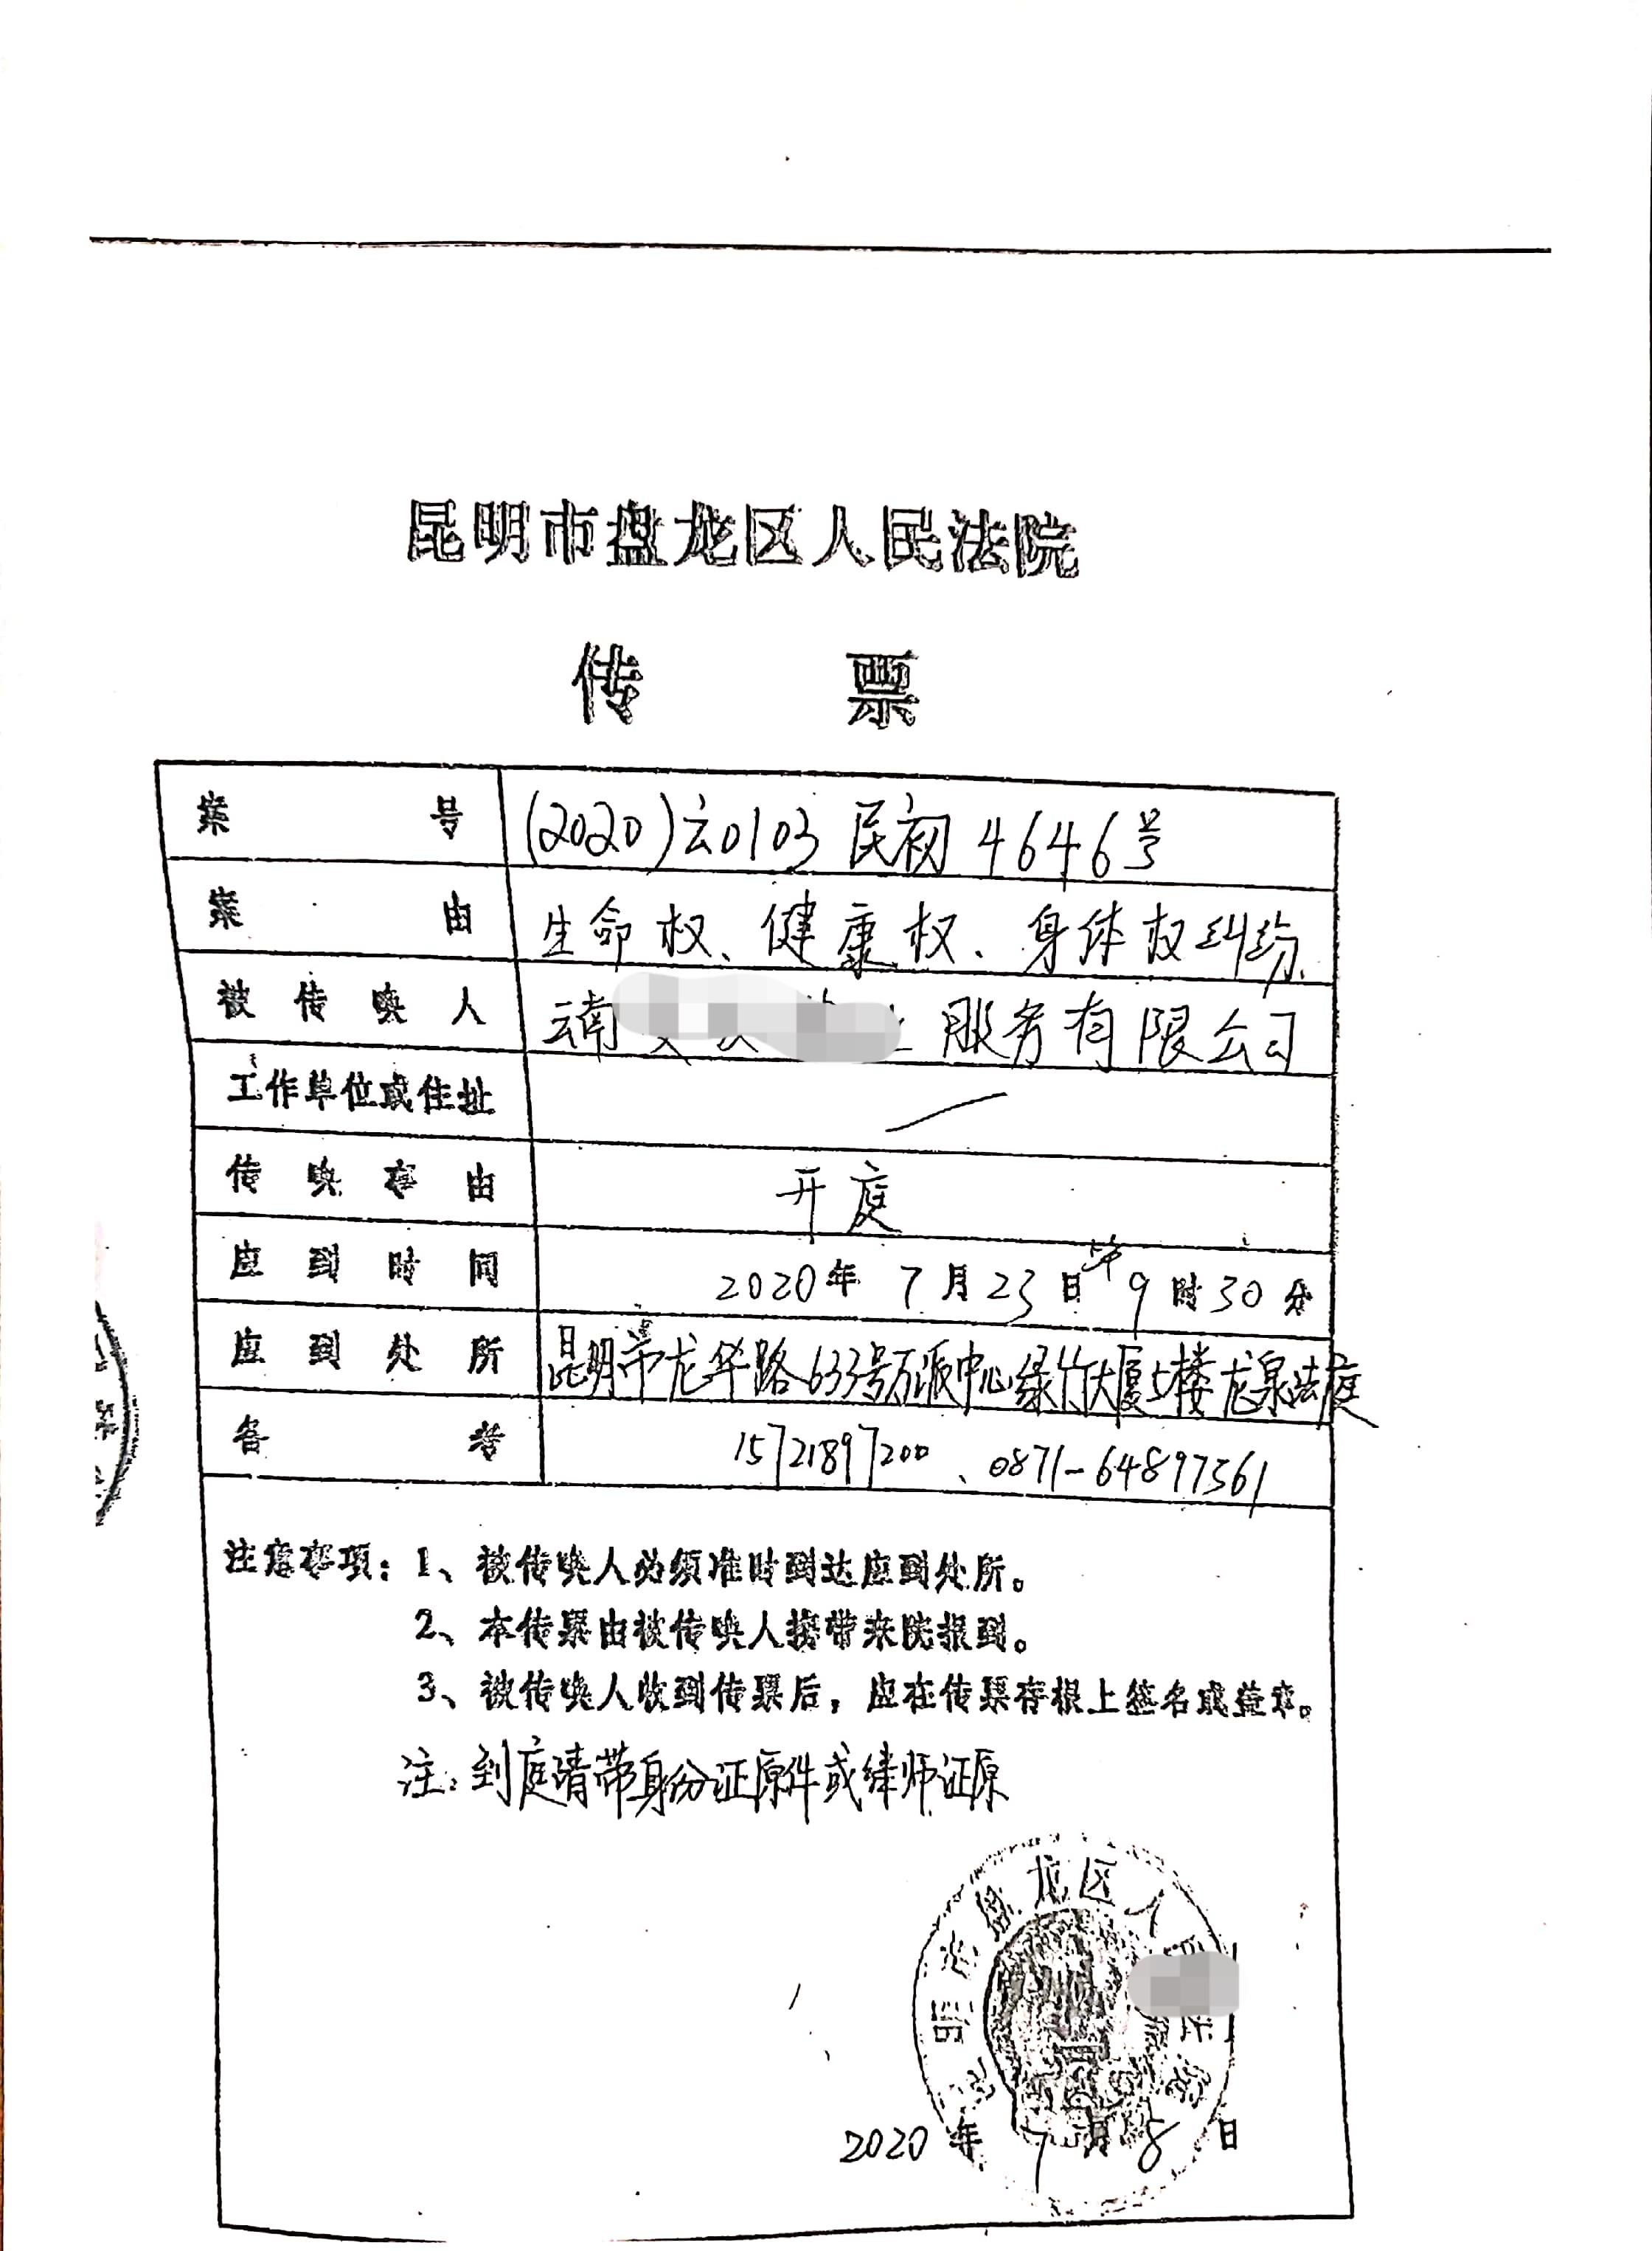 昆明市盘龙区人民法院
传 票
案 号 (2020)云0103民初4646号
案 由 生命权、健康权、身体权纠纷
被传唤人 云南 服务有限公司
工作单位或住址
传唤事由 开庭
应到时间 2020年7月23日 9时30分
应到处所 昆明市龙华路633号万派中心绿竹大厦 楼龙泉法庭
备 考 15721897200、0871-64897561
注意事项：1、被传唤人必须准时到达应到处所。
2、本传票由被传唤人携带来院报到。
3、被传唤人收到传票后，应在传票存根上签名或盖章。
注：到庭请带身份证原件或律师证原
昆明市盘龙区人民法院
2020年7月8日